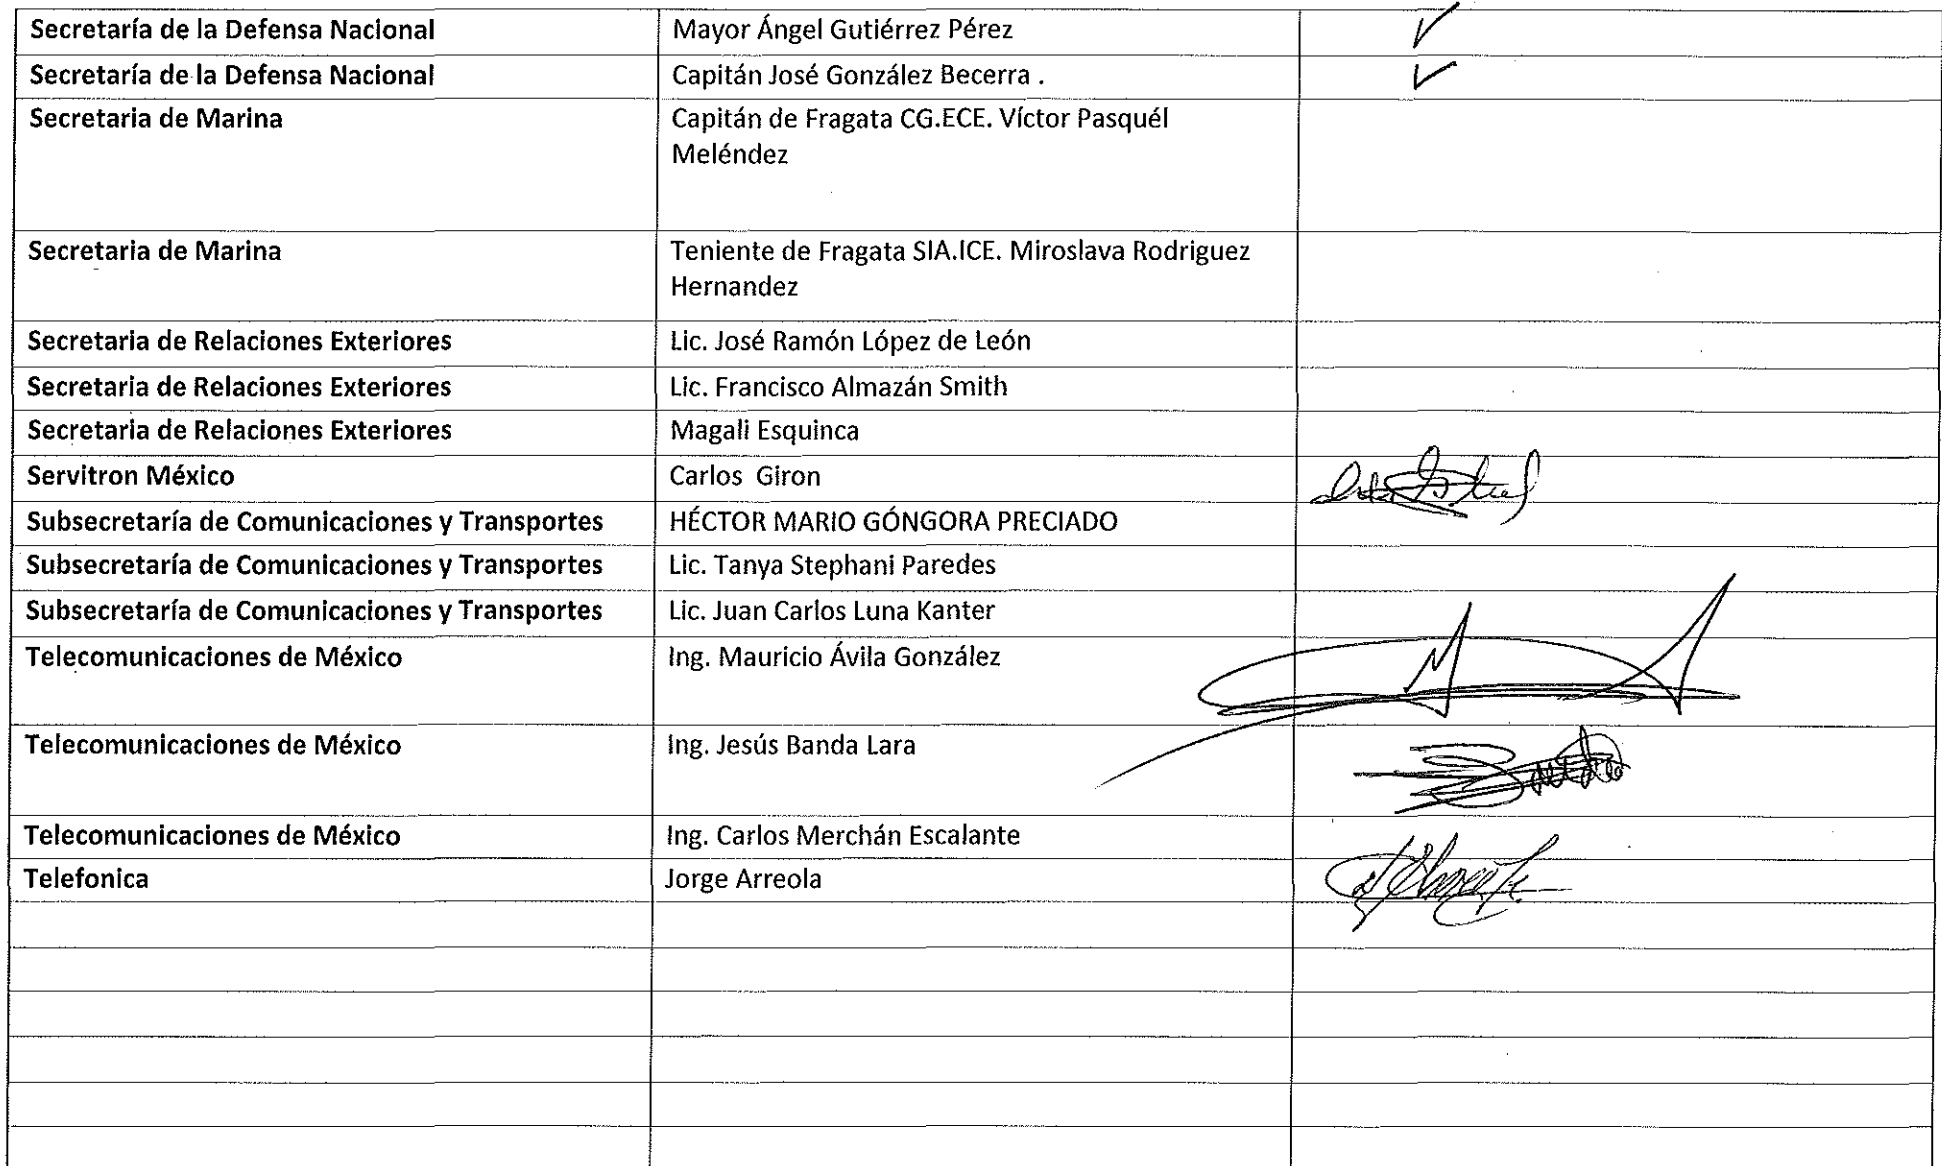 Secretaría de la Defensa Nacional Mayor Ángel Gutiérrez Pérez ✓
Secretaría de la Defensa Nacional Capitán José González Becerra . ✓
Secretaria de Marina Capitán de Fragata CG.ECE. Víctor Pasquél
Meléndez
Secretaria de Marina Teniente de Fragata SIA.ICE. Miroslava Rodriguez
Hernandez
Secretaria de Relaciones Exteriores Lic. José Ramón López de León
Secretaria de Relaciones Exteriores Lic. Francisco Almazán Smith
Secretaria de Relaciones Exteriores Magali Esquinca
Servitron México Carlos Giron
Subsecretaría de Comunicaciones y Transportes HÉCTOR MARIO GÓNGORA PRECIADO
Subsecretaría de Comunicaciones y Transportes Lic. Tanya Stephani Paredes
Subsecretaría de Comunicaciones y Transportes Lic. Juan Carlos Luna Kanter
Telecomunicaciones de México Ing. Mauricio Ávila González
Telecomunicaciones de México Ing. Jesús Banda Lara
Telecomunicaciones de México Ing. Carlos Merchán Escalante
Telefonica Jorge Arreola